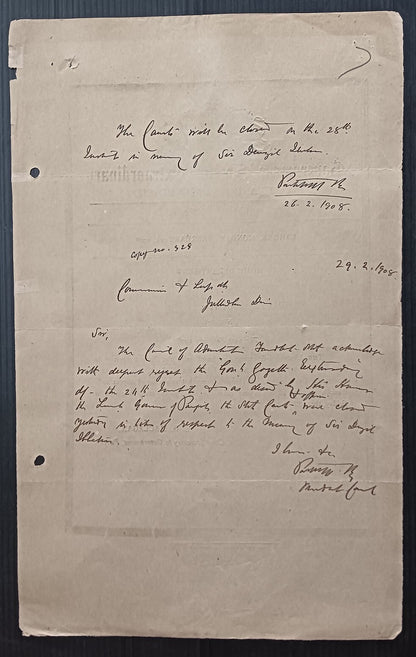 The Courts will be closed on the 28th
Instant in memory of Sir Denzil Ibbetson.
26.2.1908.
Copy no. 328
29.2.1908
Commissioner & Supdt
Jullundur Div
Sir,
The Council of Administration State acknowledge
with deepest regret the Govt Gazette Extraordinary
of the 24th Instant & as desired by His Honour
the Lieut Governor of Punjab, the State Courts & offices were closed
yesterday in token of respect to the Memory of Sir Denzil
Ibbetson
I have &c